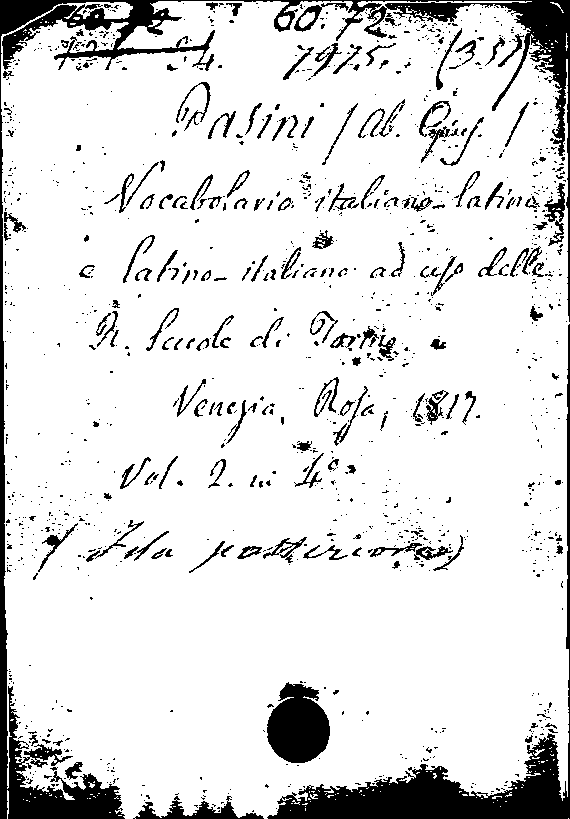 60.72 60.72
7975. (351)
Pasini / Ab. Gius. /
Vocabolario italiano-latino
e latino-italiano ad uso delle
R. Scuole di Torino.
Venezia, Rosa, 1817.
Vol. 2. in 4°
posteriore)